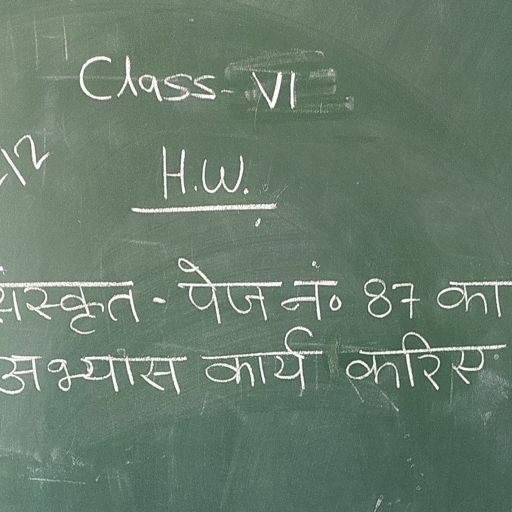 Class- VI
12
H.W.
संस्कृत - पेज नं० 87 का
अभ्यास कार्य करिए